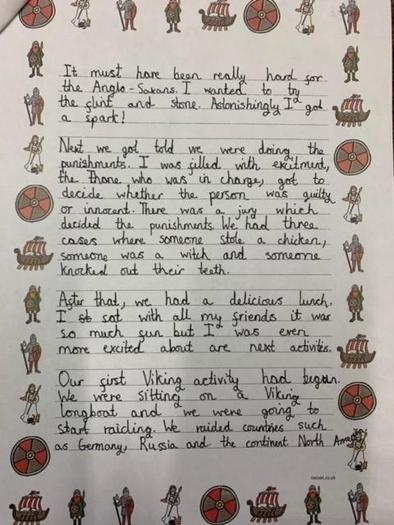 It must have been really hard for
the Anglo-Saxons. I wanted to try
the flint and stone. Astonishingly I got
a spark!
Next we got told we were doing the
punishments. I was filled with excitment,
the thane who was in charge, got to
decide whether the person was guilty
or innocent. There was a jury which
decided the punishments. We had three
cases where someone stole a chicken,
someone was a witch and someone
knocked out their teeth.
After that, we had a delicious lunch.
I sat with all my friends it was
so much fun but I was even
more excited about are next activites.
Our first Viking activity had began.
We were sitting on a Viking
longboat and we were going to
start raiding. We raided countries such
as Germany, Russia and the continent North